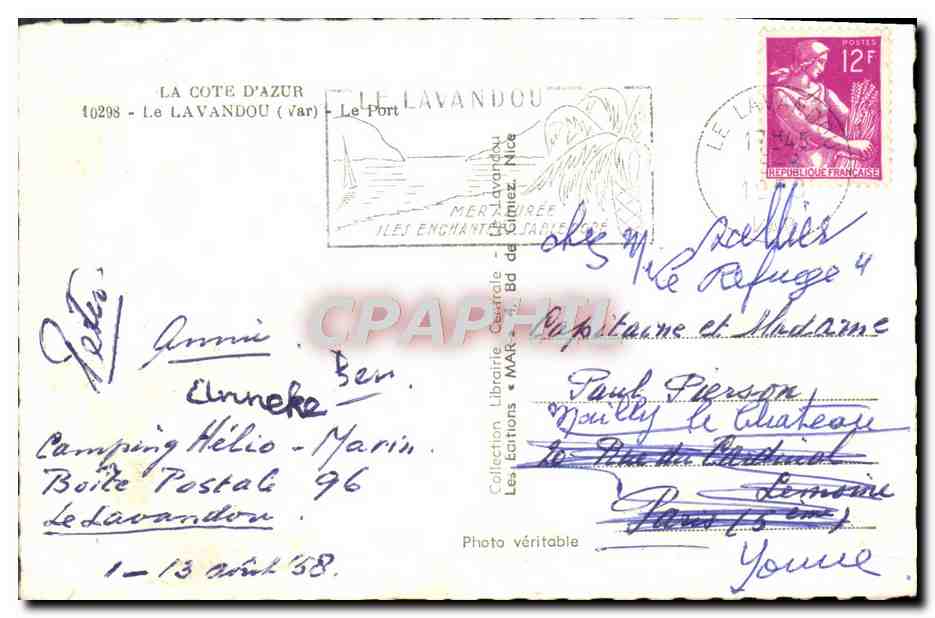 LA COTE D'AZUR
10298 - Le LAVANDOU (Var) - Le Port
LE LAVANDOU
MER AZURÉE
ILES ENCHANTÉES SABLE DORÉ
LE LAVANDOU
POSTES
12F
REPUBLIQUE FRANÇAISE
Collection Librairie Centrale - Le Lavandou
Les Editions « MAR » 4, Bd de Cimiez, Nice
CPAPHIL
Peter.
Annie.
Ben.
Anneke
Camping Hélio-Marin.
Boîte Postale 96
Le Lavandou.
1-13 août '58.
chez Mr
"Le Refuge"
Capitaine et Madame
Paul Pierson
Mailly le Chateau
20 Rue du Cardinal
Lemoine
Paris (5ème)
Yonne
Photo véritable